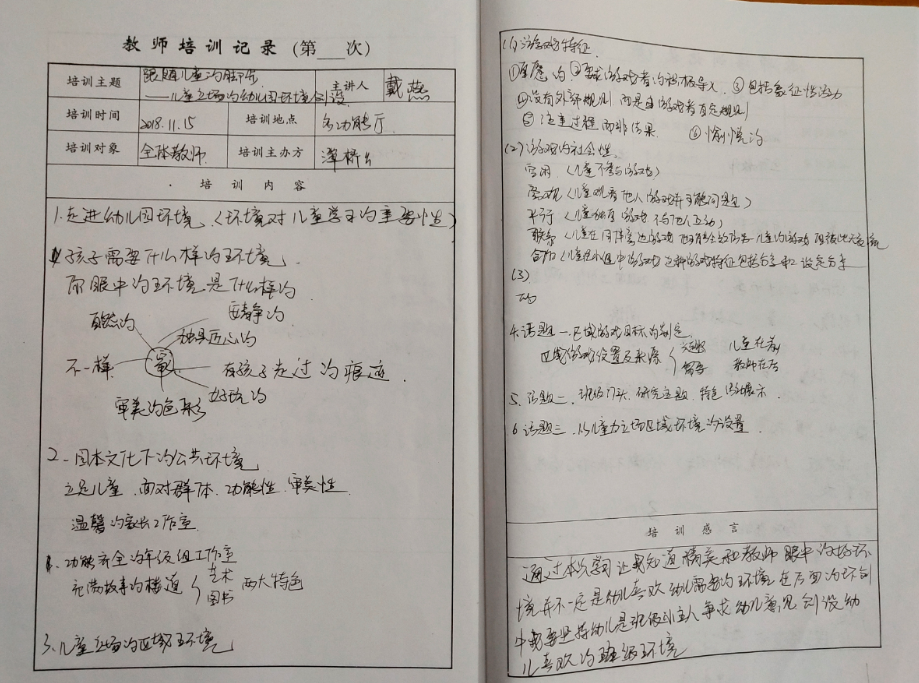 教师培训记录（第___次）
培训主题 跟随儿童的脚步 主讲人 戴燕
——儿童立场的幼儿园环境创设
培训时间 2018.11.15 培训地点 多功能厅
培训对象 全体教师 培训主办方 潭桥
培训内容
1.走进幼儿园环境、（环境对儿童学习的重要性）
孩子需要什么样的环境
眼中的环境是什么样的
自然的 安静的
独具匠心的
不一样 审 有孩子走过的痕迹
审美的色彩 好玩的
2、园本文化下的公共环境
立足儿童、面对群体、功能性、审美性
温馨的家长工作室
功能齐全的年级组工作室
充满故事的楼道 艺术 图书 两大特色
3、儿童立场的区域环境
(1)游戏特征
①自愿的 ②要求游戏者的积极导入 ③包括象征性活力
④没有外部规则 而是自游戏者自定规则
⑤注重过程而非结果 ⑥愉悦的
(2)游戏的社会性
空闲（儿童不参与游戏）
旁观（儿童观看他人游戏并可能问问题）
平行（儿童独自游戏 不与他人互动）
联系（儿童在同伴旁边游戏
合作（儿童在小组中游戏 这种游戏特征包括分享和
(3)
4.话题一、区域游戏目标的制定
区域游戏的设置及来源 兴趣 儿童在前
教师在后
5、话题二、班级门头、研究主题、特色的展示
6、话题三、从儿童立场区域环境的设置
培训感言
通过本次学习让我知道精美和教师眼中的好环
境并不一定是幼儿喜欢 幼儿需要的环境 在后面的环创
中我要坚持幼儿是班级小主人 争求幼儿意见 创设幼
儿喜欢的班级环境